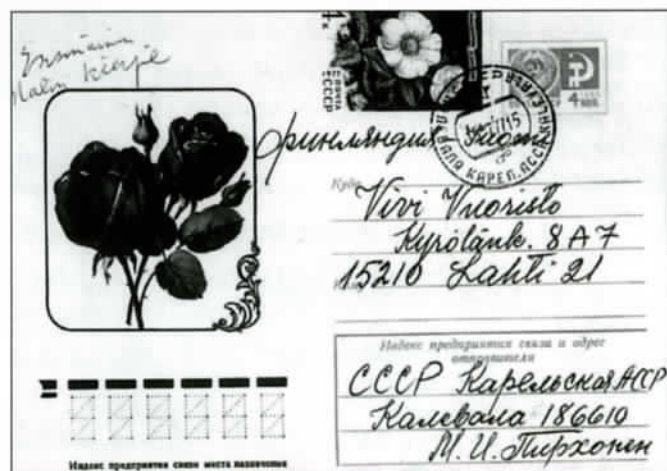 Ensimmäinen
Malm kirje
ПОЧТА
СССР
4 коп
КАЛЕВАЛА КАРЕЛ. АССР
Финляндия
Куда
Vivi Vuoristo
Kyrölänk. 8 A 7
15210 Lahti 21
Индекс предприятия связи и адрес
отправителя
СССР Карельская АССР
Калевала 186610
М. И. Пирхонен
Индекс предприятия связи места назначения